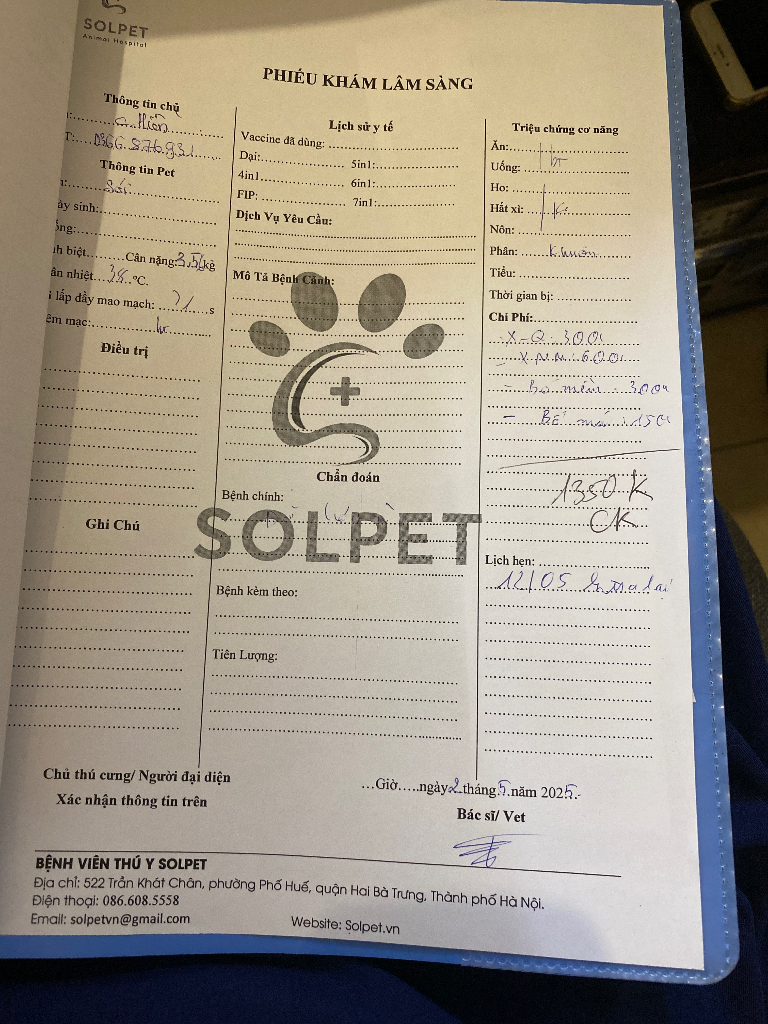 SOLPET
Animal Hospital
PHIẾU KHÁM LÂM SÀNG
Thông tin chủ
a. Hiền
T: 0366.876.931
Thông tin Pet
Sói
ày sinh:
ống:
nh biệt Cân nặng: 3,5 kg
ân nhiệt 38 °C.
i lấp đầy mao mạch: 21 s
êm mạc: hr
Điều trị
Ghi Chú
Lịch sử y tế
Vaccine đã dùng:
Dại: 5in1:
4in1 6in1:
FIP: 7in1:
Dịch Vụ Yêu Cầu:
Mô Tả Bệnh Cảnh:
Chẩn đoán
Bệnh chính:
SOLPET
Bệnh kèm theo:
Tiên Lượng:
Triệu chứng cơ năng
Ăn:
Uống: bt
Ho:
Hắt xì: Ko
Nôn:
Phân: Khuôn
Tiểu:
Thời gian bị:
Chi Phí:
- X-Q: 300k
- XNM: 600k
- Bó mềm: 300k
- 150k
1350 K
CK
Lịch hẹn:
12/05 lại
Chủ thú cưng/ Người đại diện
Xác nhận thông tin trên
...Giờ.....ngày 2 tháng 5 năm 2025.
Bác sĩ/ Vet
BỆNH VIÊN THÚ Y SOLPET
Địa chỉ: 522 Trần Khát Chân, phường Phố Huế, quận Hai Bà Trưng, Thành phố Hà Nội.
Điện thoại: 086.608.5558
Email: solpetvn@gmail.com Website: Solpet.vn